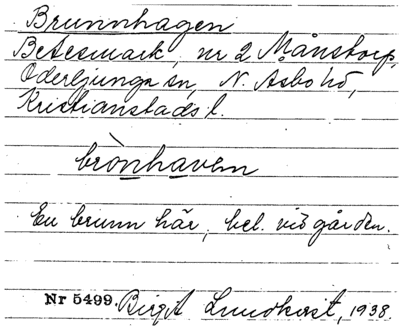 Brunnhagen
Betesmark, nr 2 Månstorp,
Oderljunga sn, N. Åsbo hd,
Kristianstads l.
brònhaven
En brunn här, bel. vid gården.
Nr 5499. Birgit Lundkvist, 1938.